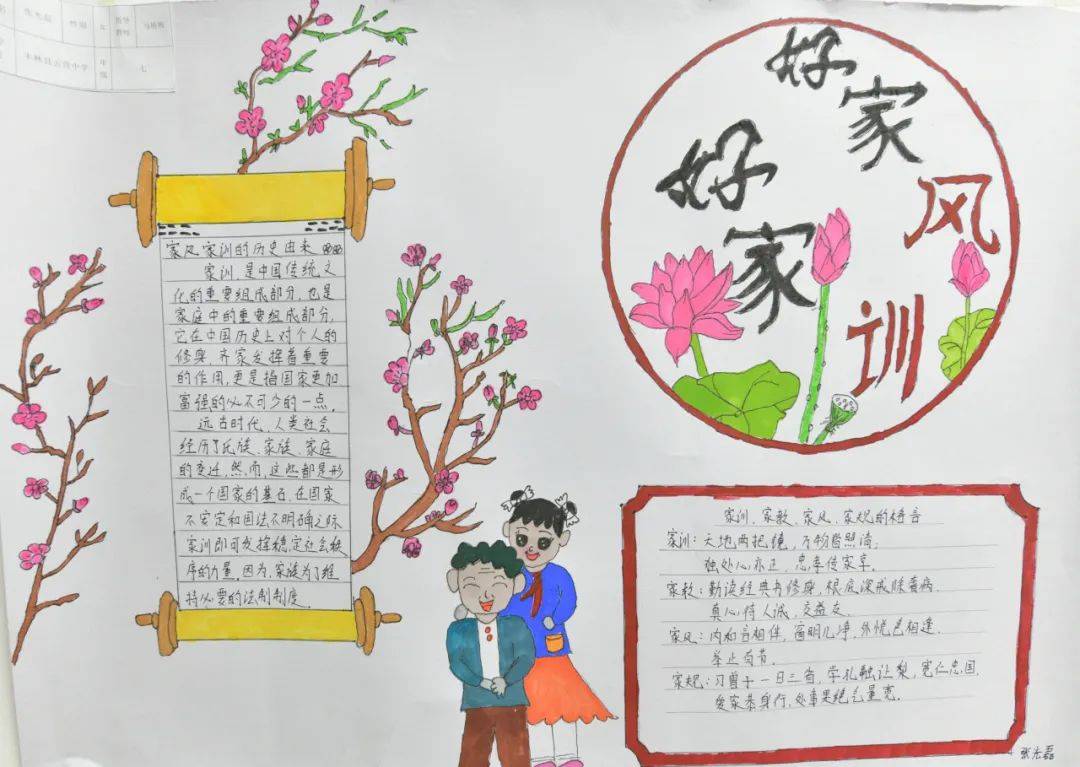 指导
教师
年
级
七
好家风
好家训
家风家训的历史由来
家训是中国传统文
化的重要组成部分,也是
家庭中的重要组成部分,
它在中国历史上对个人的
修身、齐家发挥着重要
的作用,更是指国家更加
富强的必不可少的一点。
远古时代,人类社会
经历了氏族、家族、家庭
的变迁,然而,这些都是形
成一个国家的基石,在国家
不安定和国法不明确之际
家训即可发挥稳定社会秩
序的力量。因为,家族为了维
持必要的法制制度。
家训、家教、家风、家规的格言
家训:天地两把镜,万物皆照清;
独处心亦正,忠孝传家享。
家教:勤读经典书修身,根底深戒除毒病.
真心待人诚,交益友.
家风:内和言相伴,窗明几净,外悦色相逢.
举止有节.
家规:习曾十一日三省,学孔融让梨,宽仁忠国,
爱家恭身行,处事果绝乞量宽。
张光磊